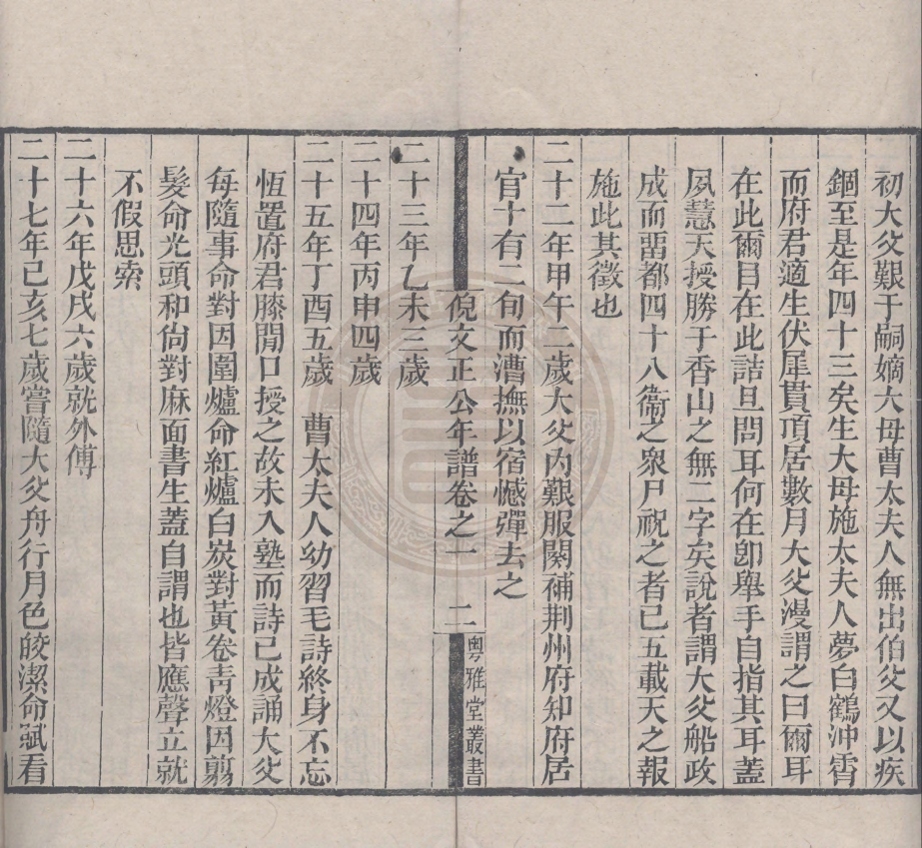 初大父艱于嗣嫡大母曹太夫人無出伯父又以疾
錮至是年四十三矣生大母施太夫人夢白鶴沖霄
而府君適生伏犀貫項居數月大父漫謂之曰爾耳
在此爾目在此詰旦問耳何在卽舉手自指其耳蓋
夙慧天授勝于香山之無二字矣說者謂大父船政
成而畱都四十八衞之衆尸祝之者已五載天之報
施此其徵也
二十二年甲午二歲大父內艱服闋補荆州府知府居
官十有二旬而漕撫以宿憾彈去之
倪文正公年譜卷之一 二 粵雅堂叢書
二十三年乙未三歲
二十四年丙申四歲
二十五年丁酉五歲 曹太夫人幼習毛詩終身不忘
恆置府君膝閒口授之故未入塾而詩已成誦大父
每隨事命對因圍爐命紅爐白炭對黃卷靑燈因翦
髮命光頭和尙對麻面書生蓋自謂也皆應聲立就
不假思索
二十六年戊戌六歲就外傅
二十七年己亥七歲嘗隨大父舟行月色皎潔命賦看